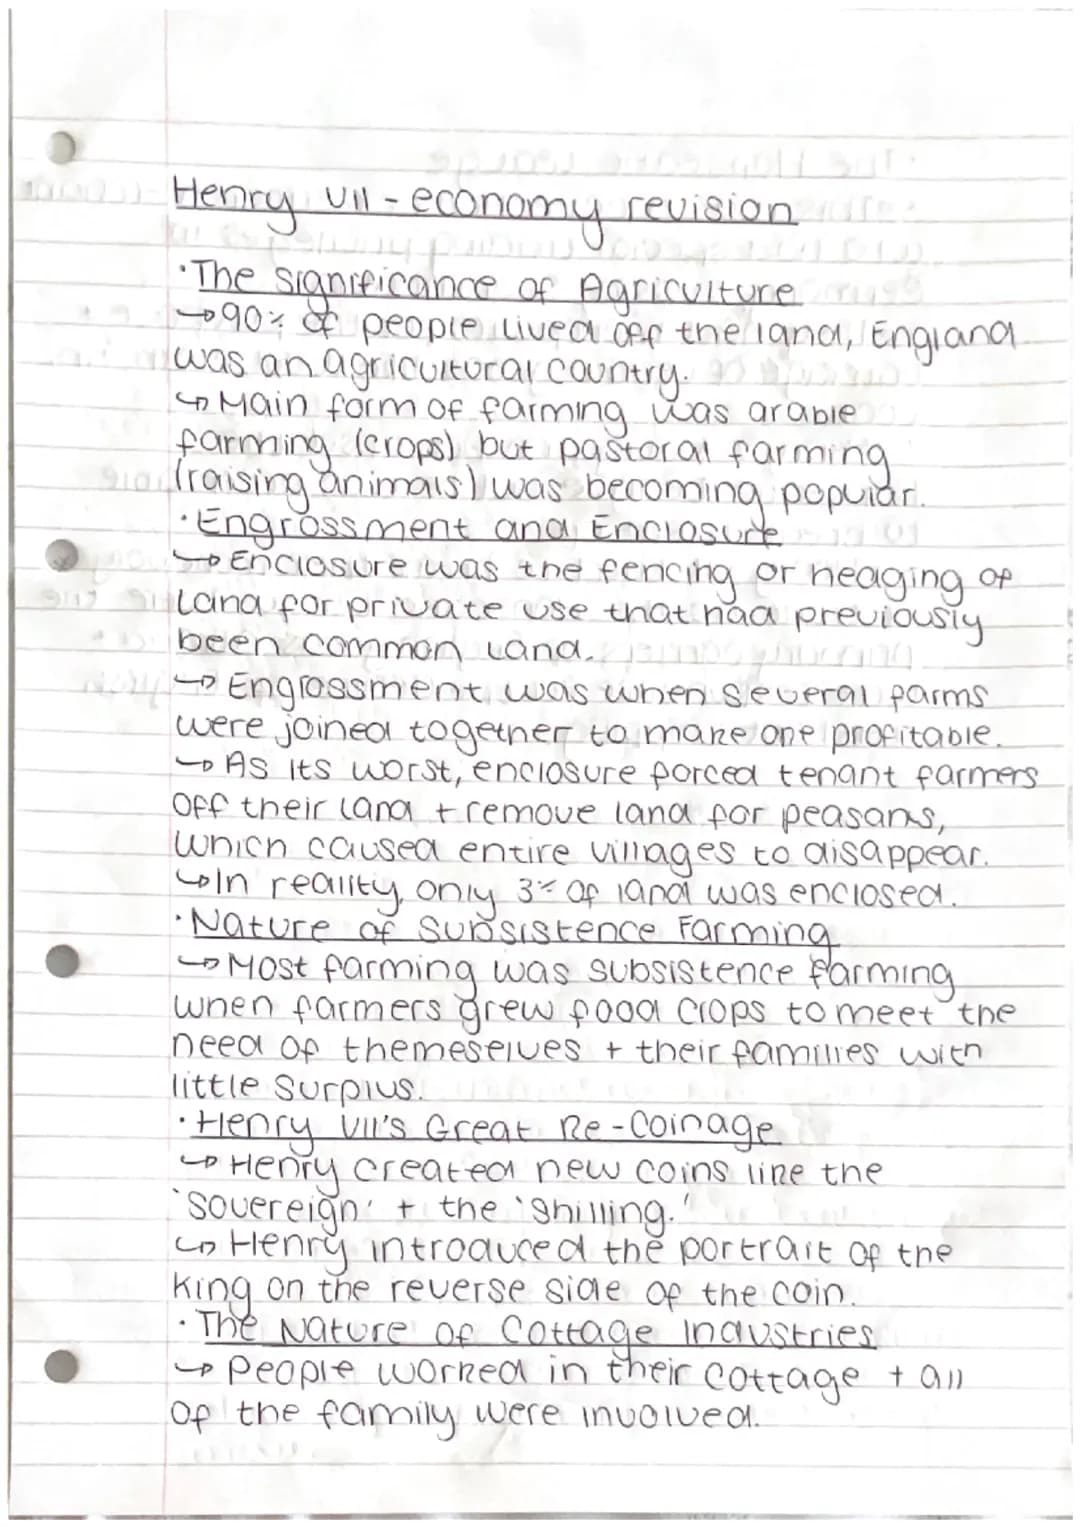 Henry VII - economy revision
· The significance of Agriculture
→ 90% of people lived off the land, England
was an agricultural country.
↳ Main form of farming was arable
farming (crops) but pastoral farming
(raising animals) was becoming popular.
· Engrossment and Enclosure
↳ Enclosure was the fencing or hedging of
Land for private use that had previously
been common land.
↳ Engrossment was when several farms
were joined together to make one profitable.
↳ As its worst, enclosure forced tenant farmers
off their land + remove land for peasans,
which caused entire villages to disappear.
↳ In reality, only 3% of land was enclosed.
· Nature of Subsistence Farming
↳ Most farming was subsistence farming
when farmers grew food crops to meet the
need of themeselves + their families with
little surplus.
· Henry VII's Great Re-Coinage
↳ Henry created new coins like the
'sovereign' + the 'shilling.'
↳ Henry introduced the portrait of the
King on the reverse side of the coin.
· The Nature of Cottage Industries
↳ People worked in their cottage + all
of the family were involved.